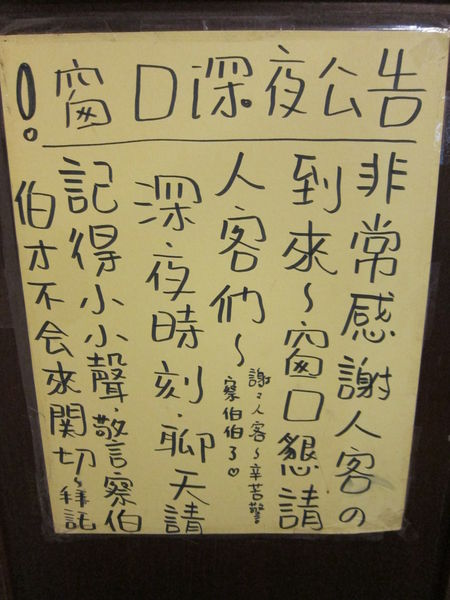 ！窗口深夜公告
非常感謝人客の
到來～窗口懇請
人客們～
深夜時刻．聊天請
記得小小聲．警察伯
伯才不会來関切～拜託
謝〻人客～辛苦警
察伯伯了♡